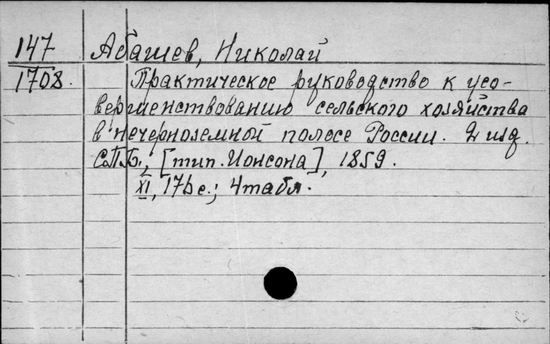 147 Абашев, Николай
1708. Практическое руководство к усо-
вершенствованию сельского хозяйства
в нечерноземной полосе России. 2 изд.
С.П.Б., [тип. Ионсона], 1859.
XI, 176 с.; 4 табл.